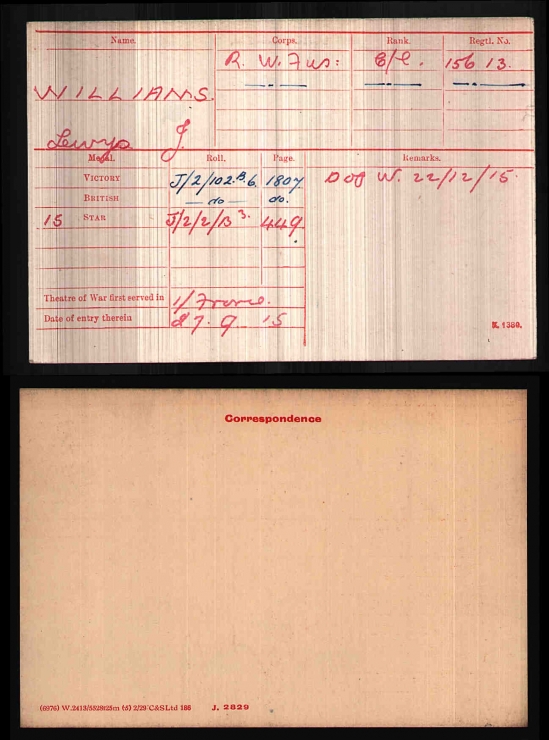 Name. Corps. Rank. Regtl. No.
R. W. Fus: C/l. 15613.
WILLIAMS.
Lewys J.
Medal. Roll. Page. Remarks.
VICTORY J/2/102.B.6. 1807 D of W. 22/12/15.
BRITISH do do.
15 STAR J/2/2/B3. 449.
Theatre of War first served in 1/ France.
Date of entry therein 27. 9. 15
K. 1380.
Correspondence
(6976) W.2413/5528t25m (5) 2/29 C&SLtd 188 J. 2829